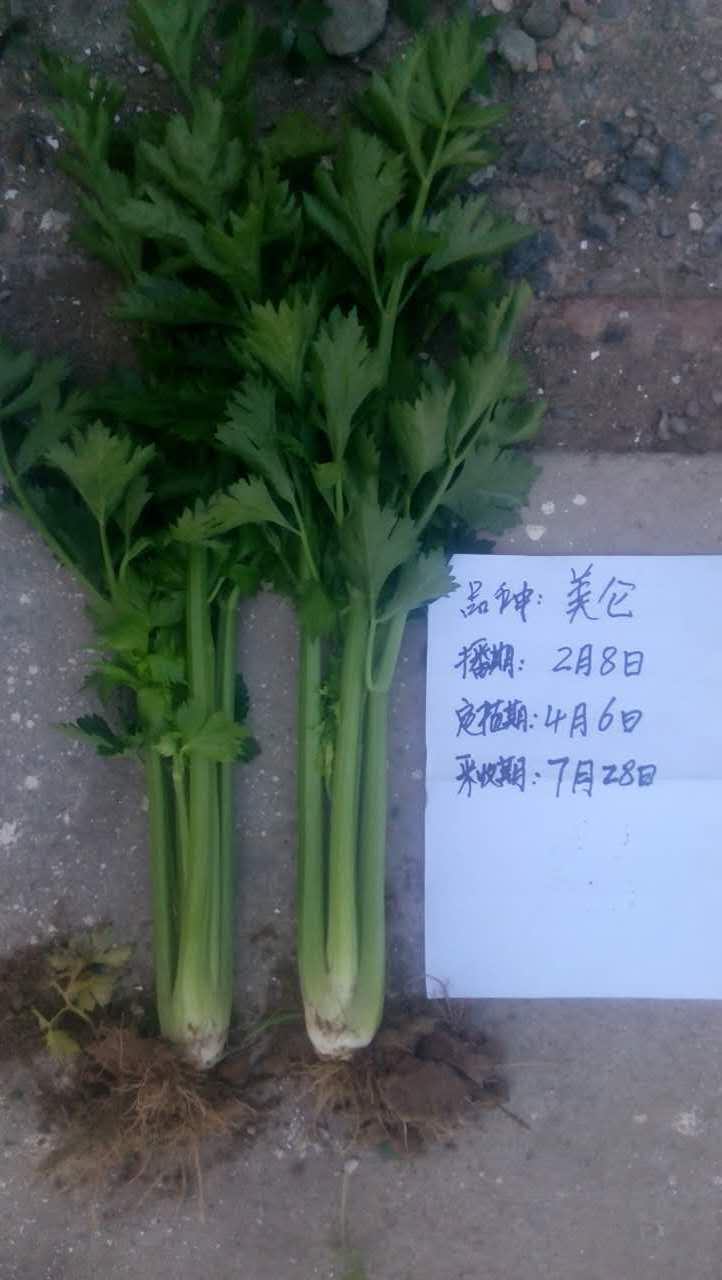 品种：美仑
播期：2月8日
定植期：4月6日
采收期：7月28日